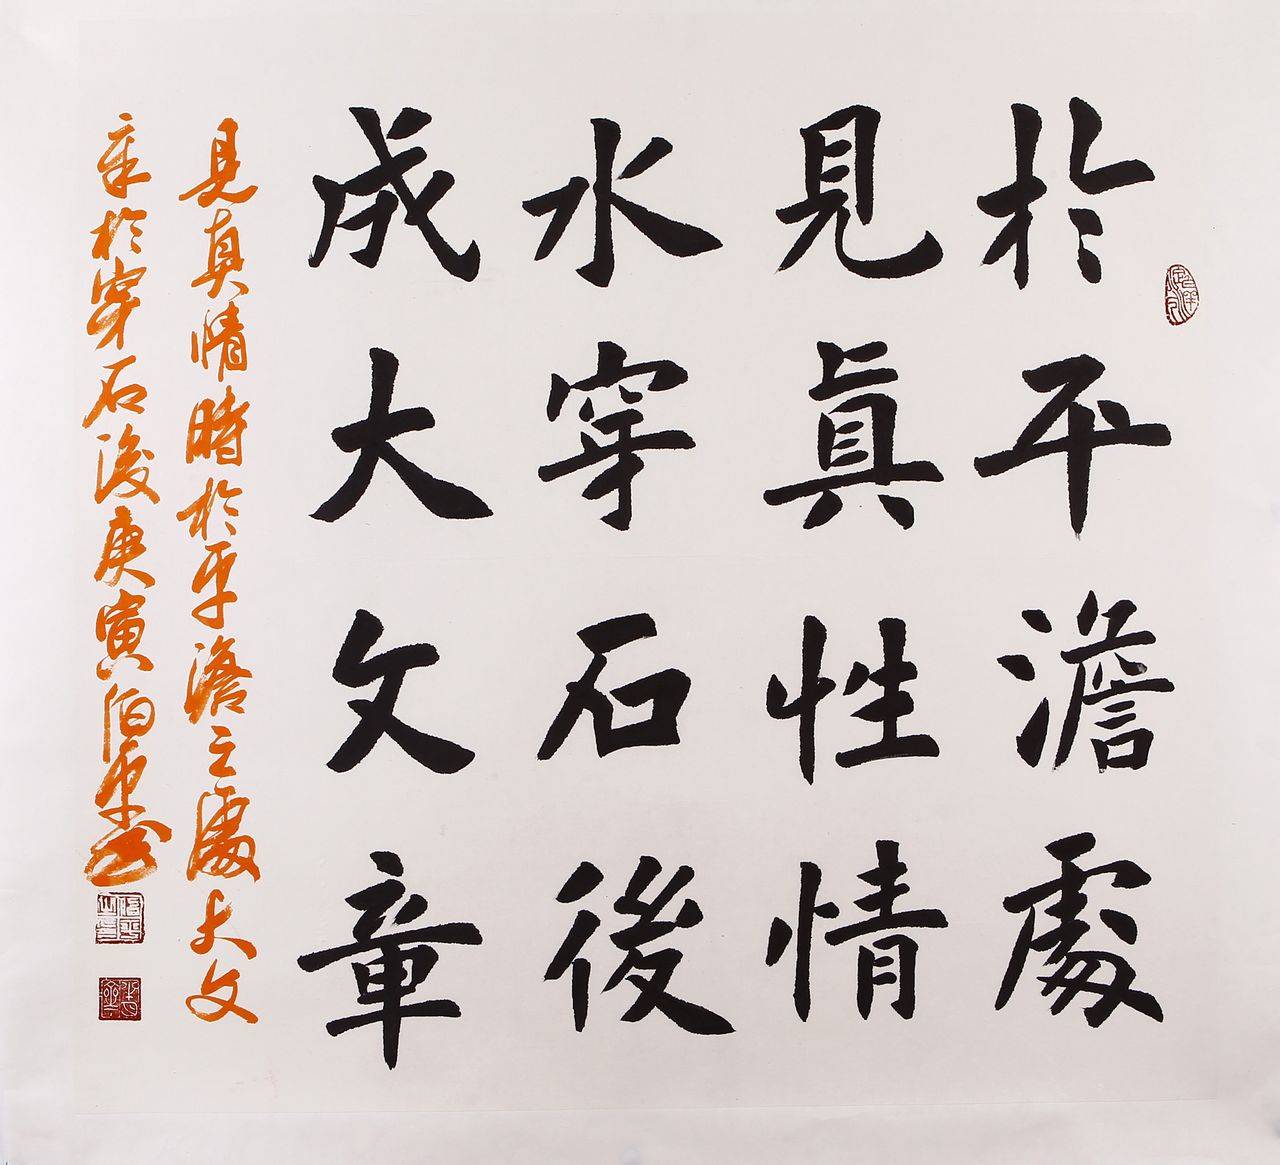 於平澹處
見真性情
水穿石後
成大文章
見真情時於平澹之處大文
章於穿石後庚寅伯平书